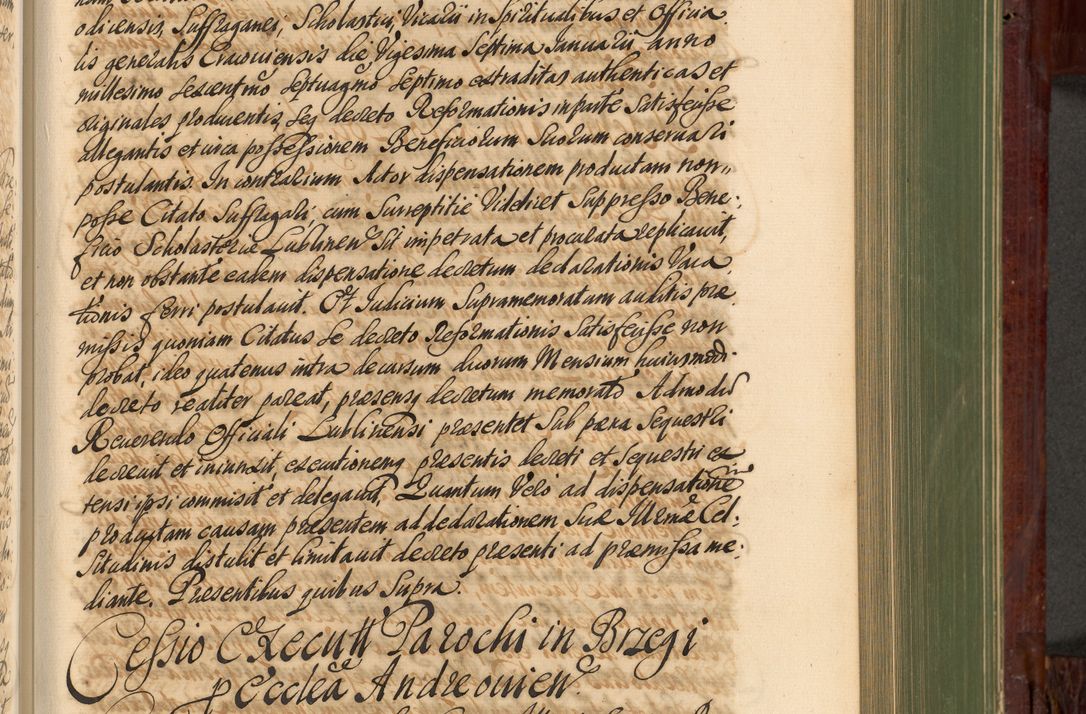 odiensis, Suffraganei, Scholastici, Vicarii in Spiritualibus et Officia
lis generalis Cracoviensis die Vigesima Septima Januarii anno
millesimo sexcentmo septuagmo septimo extraditas authenticas et
originales producentis, seq decreto Reformationis in parte satisfecisse
allegantis et circa possessionem Beneficiorum suorum conservari
postulantis. In contrarium Actor dispensationem productam non„
posse Citato Suffragari, cum surreptitie Videlicet suppresso Bene„
ficio Scholasteriae Lublinen sit impetrata et procurata replicavit,
et non obstante eadem dispensatione decretum declarationis Vaca„
tionis ferri postulavit. Et Judicium Supramemoratum auditis præ„
missis quoniam Citatus se decreto Reformationis Satisfecisse non
probat, ideo quatenus intra decursum duorum Mensium huiusmodi
decreto realiter pareat, præsensq decretum memorato Admodū
Reverendo Officiali Lublinensi præsentet sub pæna Sequestri
decrevit et iniunxit, executionemq præsentis decreti et sequestri ex
tensi ipsi commisit et delegavit, Quantum Vero ad dispensationē
productam causam præsentem ad declarationem Suæ Illrmæ Cel„
situdinis distulit et limitavit decreto præsenti ad præmissa me„
diante. Præsentibus quibus supra.
Cessio Executt Parochi in Brzegi
p Ecclea Andreovien.